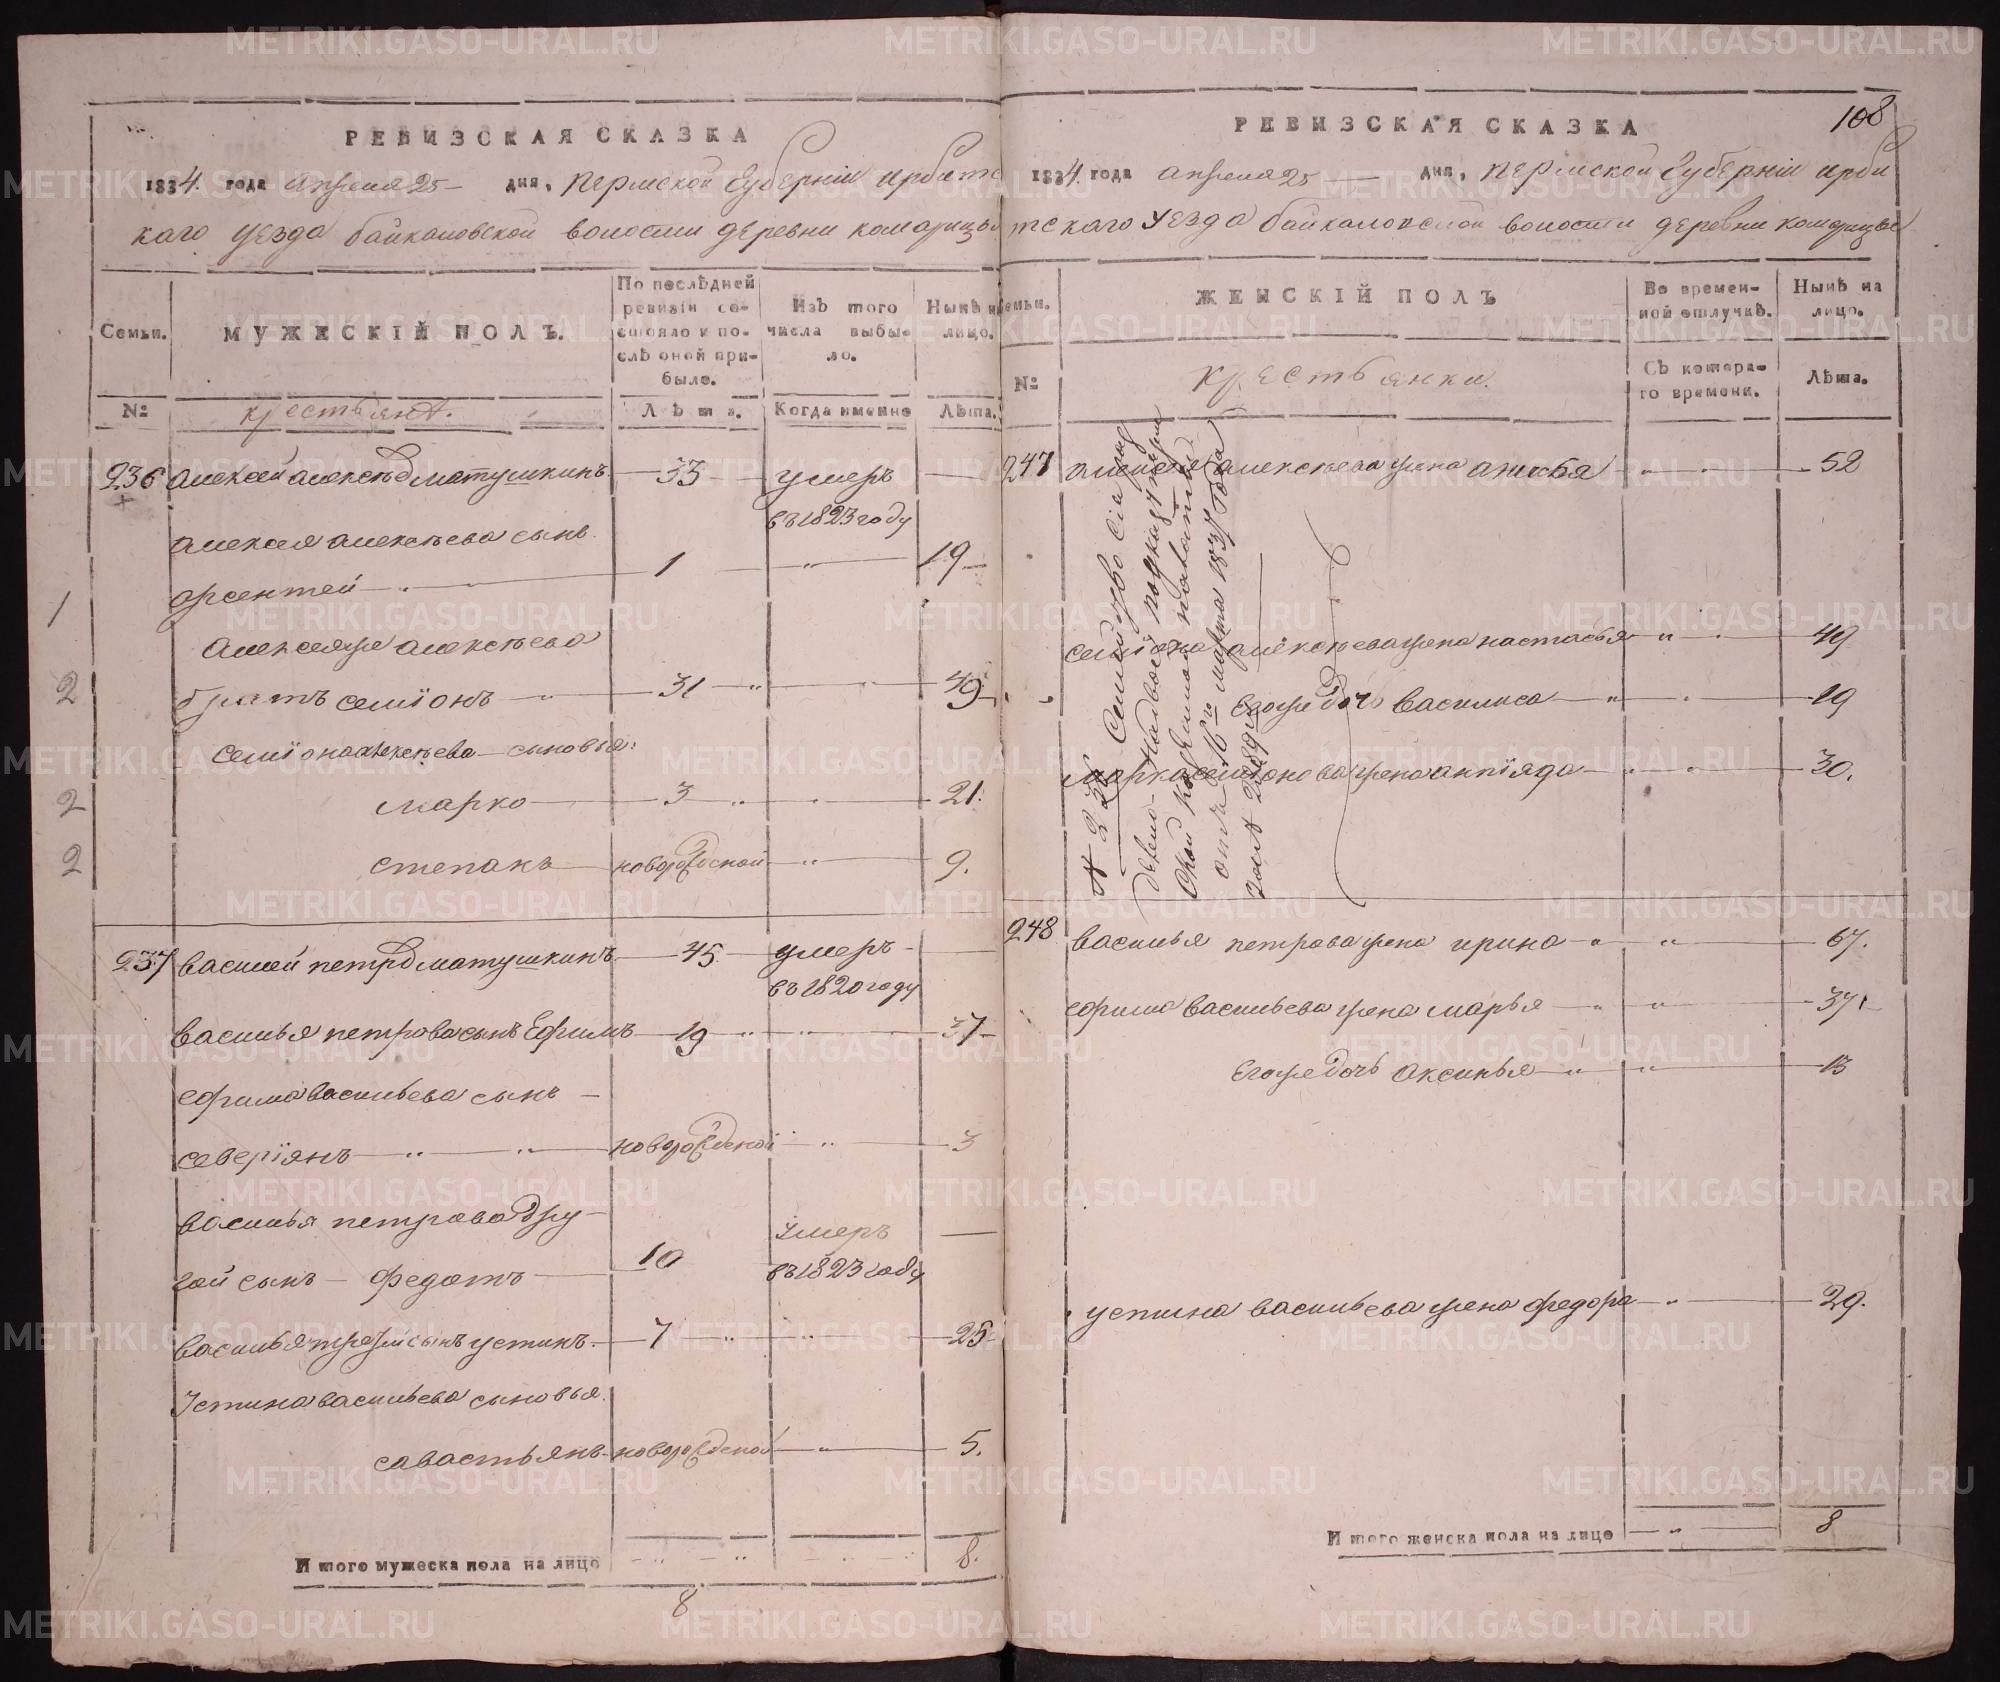 РЕВИЗСКАЯ СКАЗКА
1834. года апреля 25 дня, пермской губерніи ирбитс
каго уезда байкаловской волости деревни комарицы
Семьи.
МУЖЕСКІЙ ПОЛЪ.
По послѣдней ревизіи состояло и послѣ оной прибыло.
Изъ того числа выбыло.
Нынѣ на лицо.
№
крестьянъ.
Лѣта.
Когда именно
Лѣта.
236 Алексей алексѣев матушкинъ 33 умеръ
въ 1823 году
алексея алексѣева сынъ
арсентей 1 19
1
Алексеяже алексѣева
2 братъ семіонъ 31 49
семіона алексѣева сыновья:
2 марко 3 21.
2 степанъ новорожденой 9.
237 василей петров матушкинъ 45 умеръ
въ 1820 году
василья петрова сынъ Ефимъ 19 37
ефима васильева сынъ
северіянъ новорожденой 3
василья петрова дру
гой сынъ федотъ 10 умеръ
въ 1823 году
василья третій сынъ устинъ. 7 25
Устина васильева сыновья.
савастьянъ новорожденой 5.
Итого мужеска пола на лицо 8.
8
108
РЕВИЗСКАЯ СКАЗКА
1834. года апреля 25 дня, пермской губерніи ирби
тскаго уезда байкаловской волости деревни комарицы
Семьи.
ЖЕНСКІЙ ПОЛЪ
Во временной отлучкѣ.
Нынѣ на лицо.
№
крестьянки.
Съ котораго времени.
Лѣта.
247 алексея алексѣева жена анисья 52
семіона алексѣева жена настасья 49
Егоже дочь василиса 19
марка семіонова жена анпіяда 30.
№ 236 Семейство сіе
от 16го марта 1837 года
за № 2289
248 василья петрова жена ирина 67.
ефима васильева жена марья 37
Егоже дочь аксинья 13
устина васильева жена федора 29.
Итого женска пола на лицо 8
METRIKI.GASO-URAL.RU